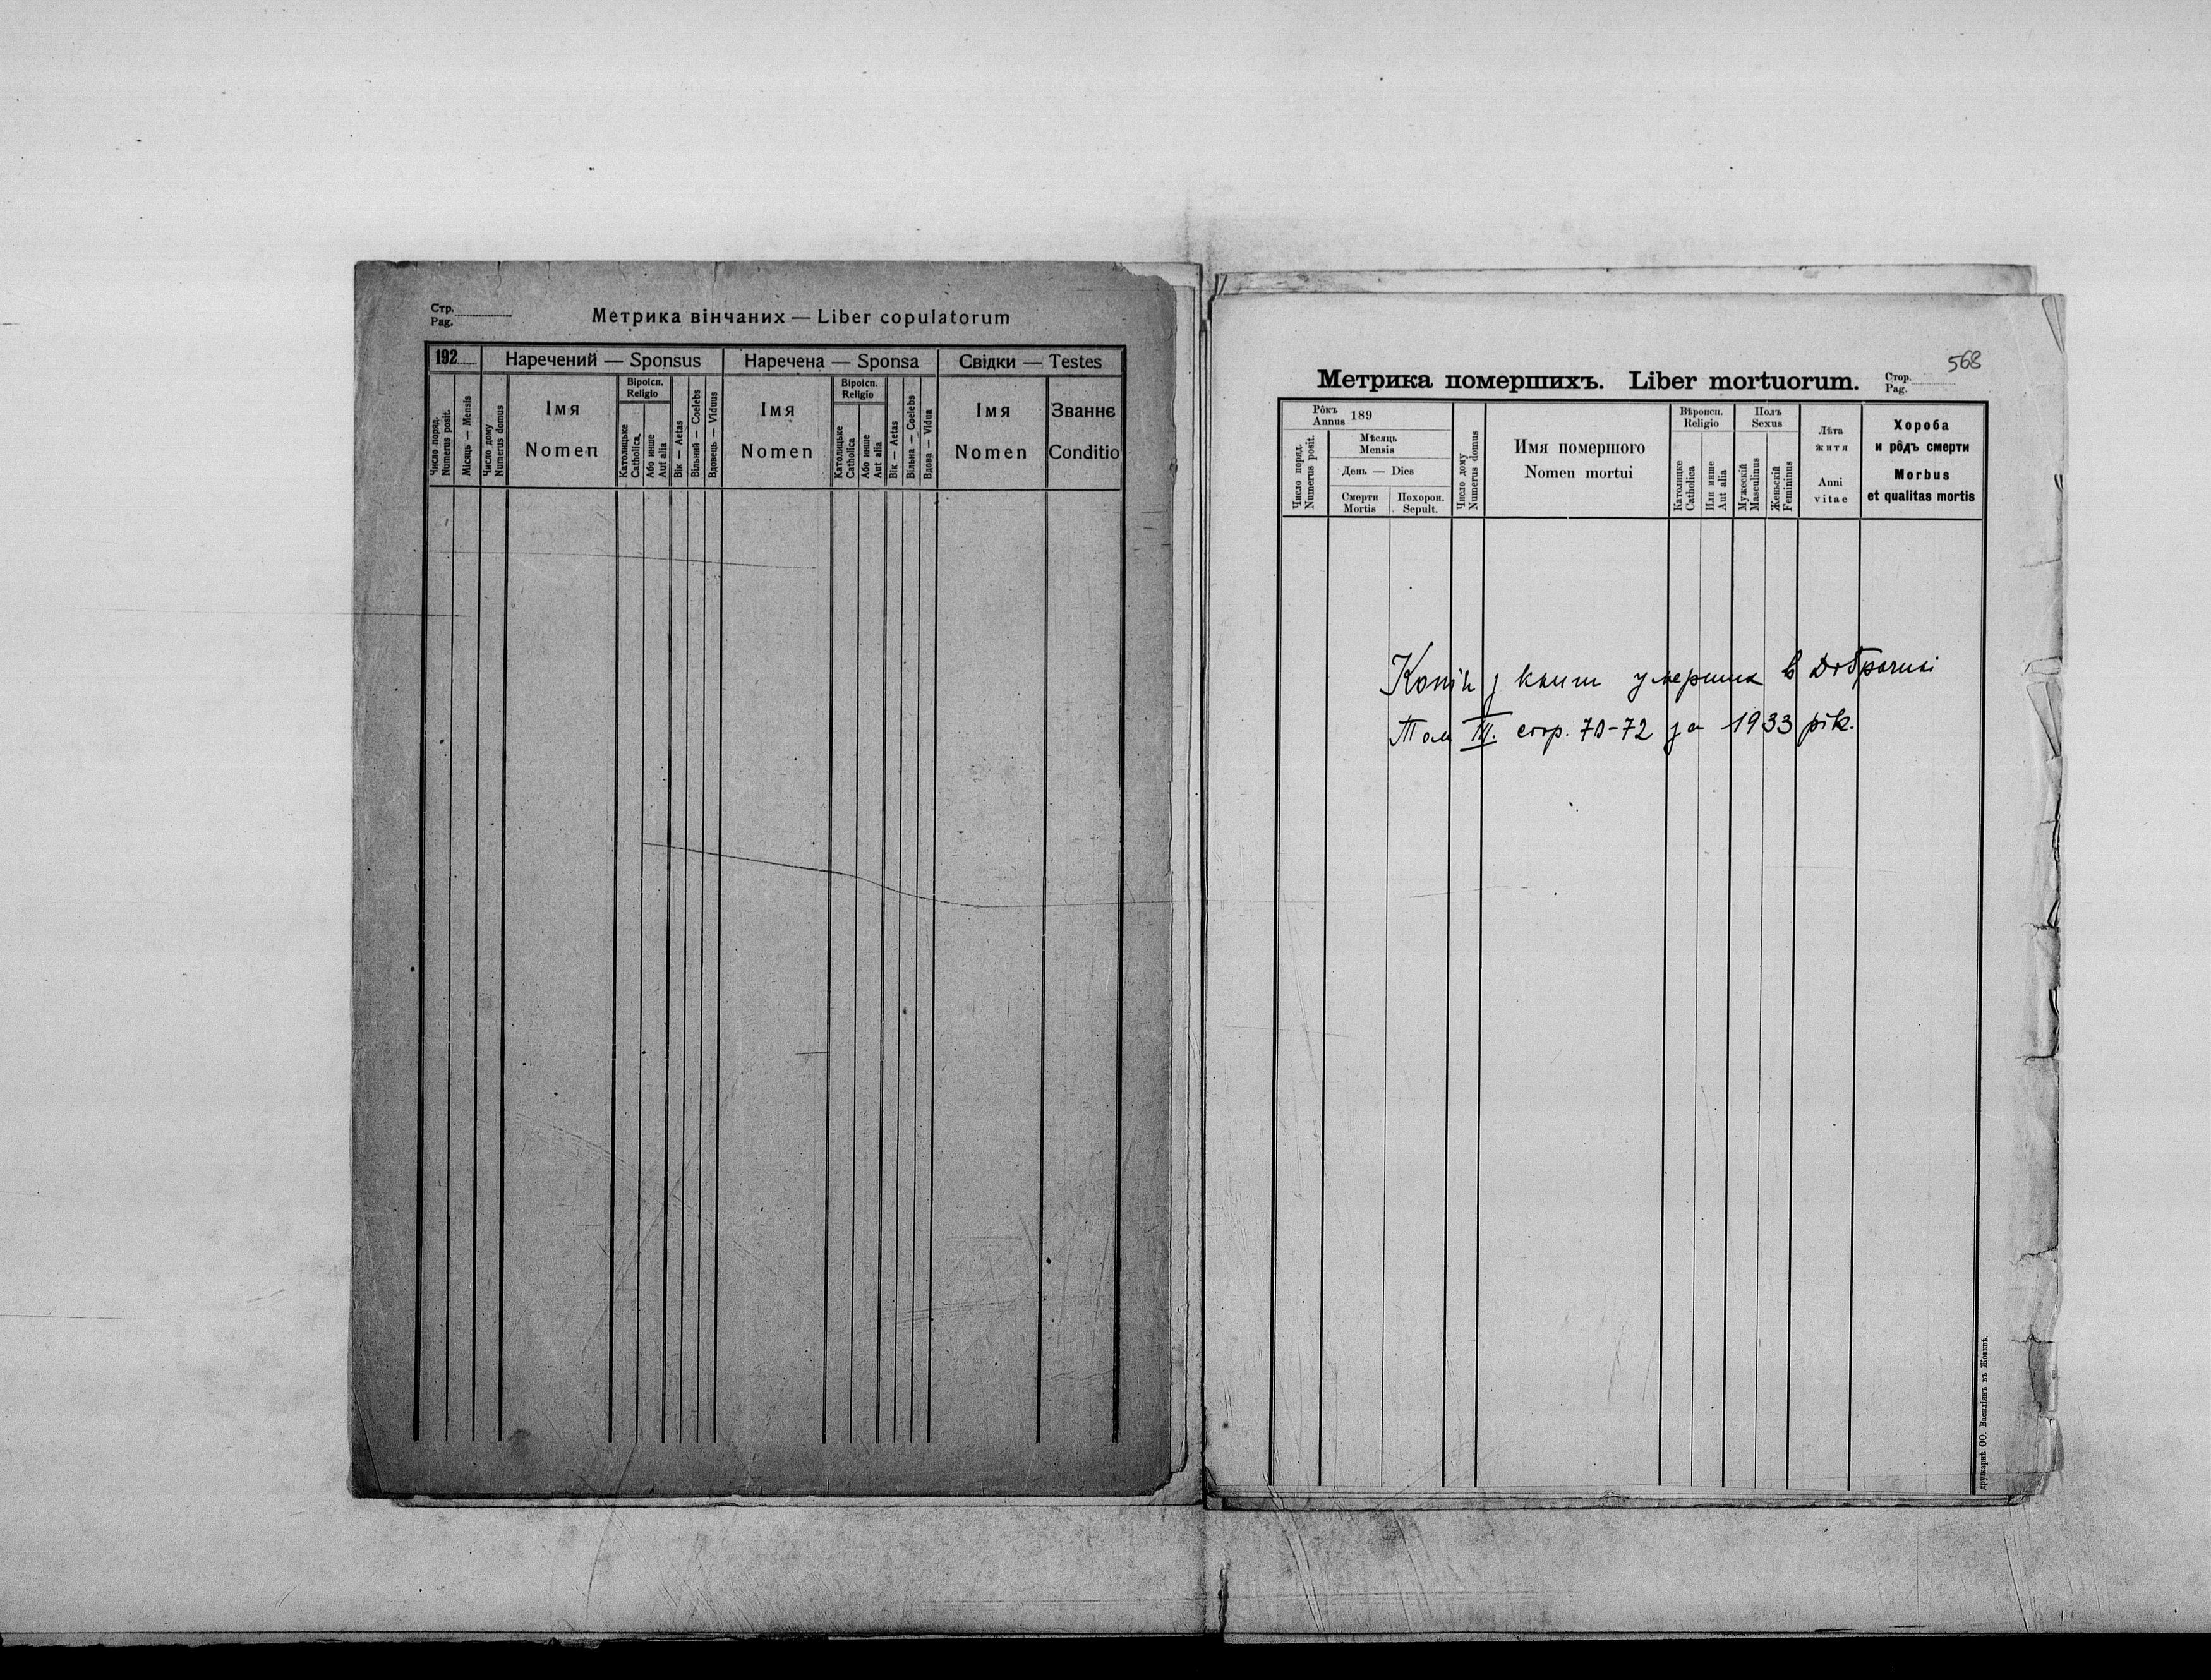 Стр.
Pag.
Метрика вінчаних — Liber copulatorum
192
Наречений — Sponsus
Наречена — Sponsa
Свідки — Testes
Число поряд.
Numerus posit.
Місяць — Mensis
Число дому
Numerus domus
Імя
Nomen
Віроісп.
Religio
Католицьке
Catholica,
Або инше
Aut alia
Вік — Aetas
Вільний — Coelebs
Вдовець — Viduus
Імя
Nomen
Віроісп.
Religio
Католицьке
Catholica
Або инше
Aut alia
Вік — Aetas
Вільна — Coelebs
Вдова — Vidua
Імя
Nomen
Званнє
Conditio
568
Метрика помершихъ. Liber mortuorum.
Стор.
Pag.
Рôкъ
Annus 189
Число поряд.
Numerus posit.
Мѣсяць
Mensis
День — Dies
Смерти
Mortis
Похорон.
Sepult.
Число дому
Numerus domus
Имя помершого
Nomen mortui
Вѣроисп.
Religio
Католицке
Catholica
Или инше
Aut alia
Полъ
Sexus
Мужескій
Masculinus
Женьскій
Femininus
Лѣта
житя
Anni
vitae
Хороба
и рôдъ смерти
Morbus
et qualitas mortis
з книги умерших в Добрачині
Том III. стор. 70-72 за 1933 рік.
друкарнѣ ОО. Василіянъ въ Жовквѣ.